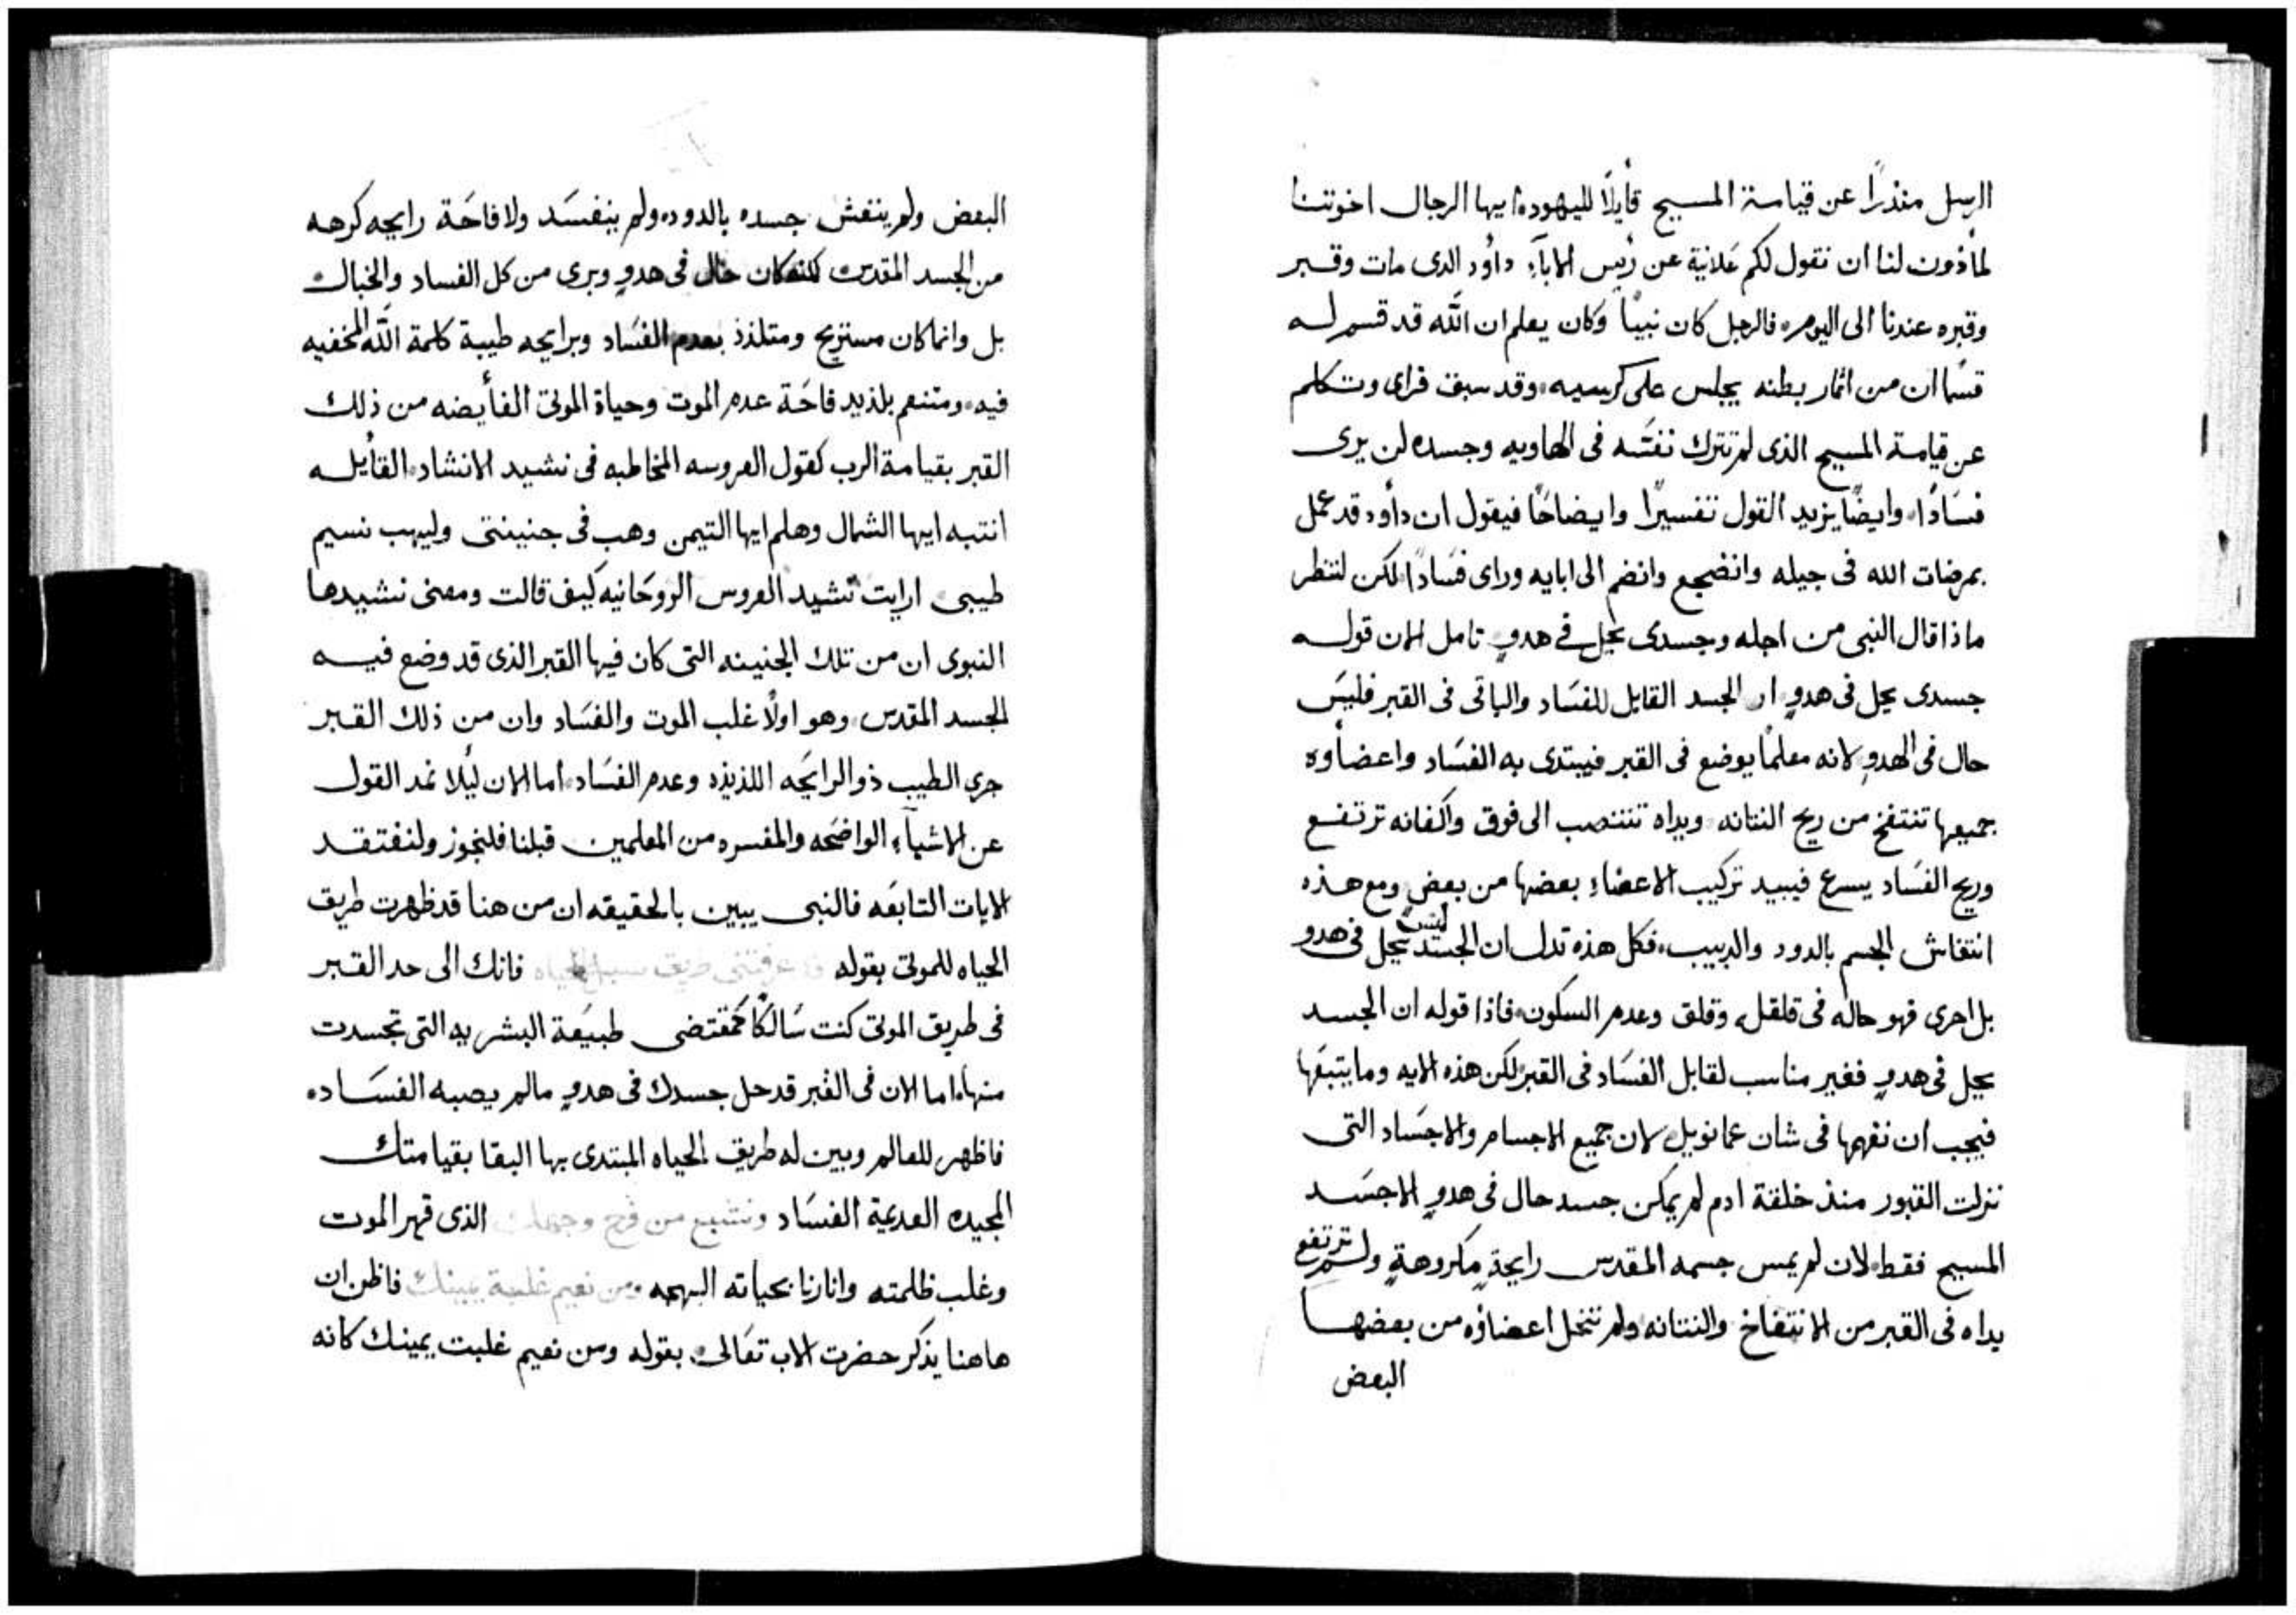 الرسل منذرًا عن قيامة المسيح قأيلًا لليهوده ايها الرجال اخوتنا
لمأذون لنا ان نقول لكم عَلانية عن رَئيس الاباءِ دأود الدى مات وقبر
وقبره عندنا الى اليوم فالرجل كان نبيًا وكان يعلم ان اللّه قد قسم له
قسمًا ان من اثمار بطنه يجلس على كرسيه وقد سبق فراى وتكلم
عن قيامة المسيح الذى لم تترك نفسَه فى الهاويه وجسده لن يرى
فسَادًا وايضًا يزيد القول تفسيرًا وايضاحًا فيقول ان دأود قد عمل
بمرضات الله فى جيله وانضجع وانضم الى ابايه وراى فسَادًا لكن لننظر
ماذا قال النبى من اجله وجسدى يحل فى هدوٍ تامل الان قوله
جسدى يحل فى هدوٍ ان الجسد القابل للفسَاد والباقى فى القبر فليسَ
حال فى الهدوِ لانه معلمًا يوضع فى القبر فيبتدى به الفسَاد واعضأوه
جميعها تنتفخ من ريح النتانه ويداه تنتصب الى فوق واكفانه ترتفع
وريح الفسَاد يسرع فيبيد تركيب الاعضاءِ بعضها من بعضٍ ومع هذه
انتفاش الجسم بالدود والدبيب فكل هذه تدل ان الجسَد ليسَ يحل فى هدو
بل احرى فهو حاله فى قلقلٍ وقلق وعدم السكون فاذا قوله ان الجسد
يحل فى هدوٍ فغير مناسب لقابل الفسَاد فى القبر لكن هذه الايه وما يتبعَها
فيجب ان نفهمها فى شان عمانويل لان جميع الاجسام والاجسَاد التى
نزلت القبور منذ خلقة ادم لم يمكن جسد حال فى هدوٍ الا جسَد
المسيح فقط لان لم يمس جسمه المقدس رايحةٍ مكروهةٍ ولم ترتفع
يداه فى القبر من الانتفاخ والنتانه ولم تنحل اعضاؤه من بعضها
البعض
البعض ولم ينتفش جسده بالدود ولم ينفسَد ولا فاحَة رايحه كرهه
من الجسد المقدس لكنه كان حال فى هدوٍ وبرى من كل الفساد والخبال
بل وانما كان مستريح ومتلذذ بعدم الفسَاد وبرايحه طيبة كلمة اللّه المخفيه
فيه ومتنعم بلذيد فاحَة عدم الموت وحياة الموتى الفأيضه من ذلك
القبر بقيامة الرب كقول العروسه المخاطبه فى نشيد الانشاد القأيله
انتبه ايها الشمال وهلم ايها التيمن وهب فى جنينتى وليهب نسيم
طيبى ارايت نشيد العروس الروحَانيه كيف قالت ومعنى نشيدها
النبوى ان من تلك الجنينه التى كان فيها القبر الذى قد وضع فيه
الجسد المقدس وهو اولًا غلب الموت والفسَاد وان من ذلك القبر
جرى الطيب ذو الرايحَه اللذيذه وعدم الفسَاد اما الان ليُلا نمد القول
عن الاشيآءِ الواضحَه والمفسره من المعلمين قبلنا فلنجوز ولنفتقد
الايات التابعَه فالنبى يبين بالحقيقه ان من هنا قد ظهرت طريق
الحياه للموتى بقوله قد عرفتنى طريق سبل الحياه فانك الى حد القبر
فى طريق الموتى كنت سَالكًا كمقتضى طبيعَة البشريه التى تجسدت
منها اما الان فى القبر قد حل جسدك فى هدوٍ مالم يصبه الفسَاده
فاظهر للعالم وبين له طريق الحياه المبتدى بها البقا بقيامتك
المجيده العديمة الفسَاد ونشبع من فرح وجهك الذى قهر الموت
وغلب ظلمته وانارنا بحياته البهجه ومن نعيم غلبة يمينك فاظن ان
هاهنا يذكر حضرت الاب تعَالى بقوله ومن نعيم غلبت يمينك كانه